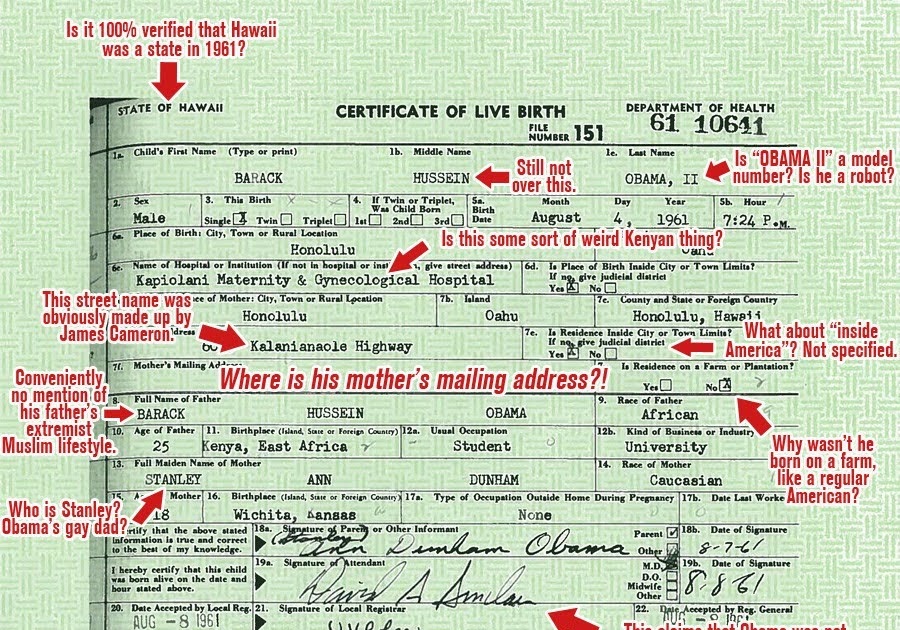 Is it 100% verified that Hawaii
was a state in 1961?
STATE OF HAWAII
CERTIFICATE OF LIVE BIRTH
DEPARTMENT OF HEALTH
FILE
NUMBER 151
61 10641
1a. Child's First Name (Type or print)
1b. Middle Name
1c. Last Name
BARACK
HUSSEIN
OBAMA, II
Still not
over this.
Is "OBAMA II" a model
number? Is he a robot?
2. Sex
Male
3. This Birth
Single X Twin Triplet
4. If Twin or Triplet,
Was Child Born
1st 2nd 3rd
5a.
Birth
Date
Month Day Year
August 4, 1961
5b. Hour
7:24 P.M.
6a. Place of Birth: City, Town or Rural Location
Honolulu
Is this some sort of weird Kenyan thing?
6c. Name of Hospital or Institution (If not in hospital or give street address)
Kapiolani Maternity & Gynecological Hospital
6d. Is Place of Birth Inside City or Town Limits?
If no, give judicial district
Yes X No
This street name was
obviously made up by
James Cameron.
of Mother: City, Town or Rural Location
Honolulu
7b. Island
Oahu
7c. County and State or Foreign Country
Honolulu, Hawaii
Kalanianaole Highway
7e. Is Residence Inside City or Town Limits?
If no, give judicial district
Yes X No
What about "inside
America"? Not specified.
7f. Mother's Mailing
Where is his mother's mailing address?!
Is Residence on a Farm or Plantation?
Yes No X
Conveniently
no mention of
his father's
extremist
Muslim lifestyle.
8. Full Name of Father
BARACK HUSSEIN OBAMA
9. Race of Father
African
10. Age of Father
25
11. Birthplace (Island, State or Foreign Country)
Kenya, East Africa
12a. Usual Occupation
Student
12b. Kind of Business or Industry
University
Why wasn't he
born on a farm,
like a regular
American?
13. Full Maiden Name of Mother
STANLEY ANN DUNHAM
14. Race of Mother
Caucasian
Who is Stanley?
Obama's gay dad?
15. Mother
18
16. Birthplace (Island, State or Foreign Country)
Wichita, Kansas
17a. Type of Occupation Outside Home During Pregnancy
None
17b. Date Last
certify that the above stated
information is true and correct
to the best of my knowledge.
18a. Signature of Parent or Other Informant
(Stanley)
Ann Dunham Obama
Parent
Other
18b. Date of Signature
8-7-61
I hereby certify that this child
was born alive on the date and
hour stated above.
19a. Signature of Attendant
David A Sinclair
M.D.
D.O.
Midwife
Other
19b. Date of Signature
8-8-61
20. Date Accepted by Local Reg.
AUG -8 1961
21. Signature of Local Registrar
22. Date Accepted by Reg. General
This claims that Obama was not